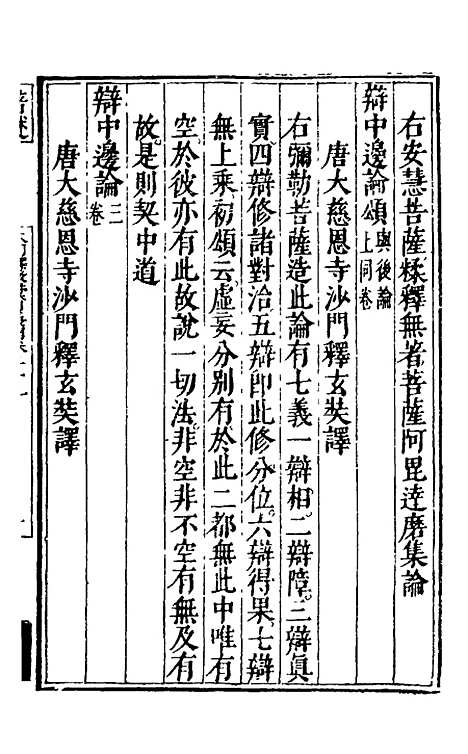 右安慧菩薩糅釋無著菩薩阿毘達磨集論
辯中邊論頌與後論上同卷
唐大慈恩寺沙門釋玄奘譯
右彌勒菩薩造此論有七義一辯相二辯障三辯眞
實四辯修諸對治五辯即此修分位六辯得果七辯
無上乘初頌云虛妄分別有於此二都無此中唯有
空於彼亦有此故說一切法非空非不空有無及有
故是則契中道
辯中邊論三卷
唐大慈恩寺沙門釋玄奘譯